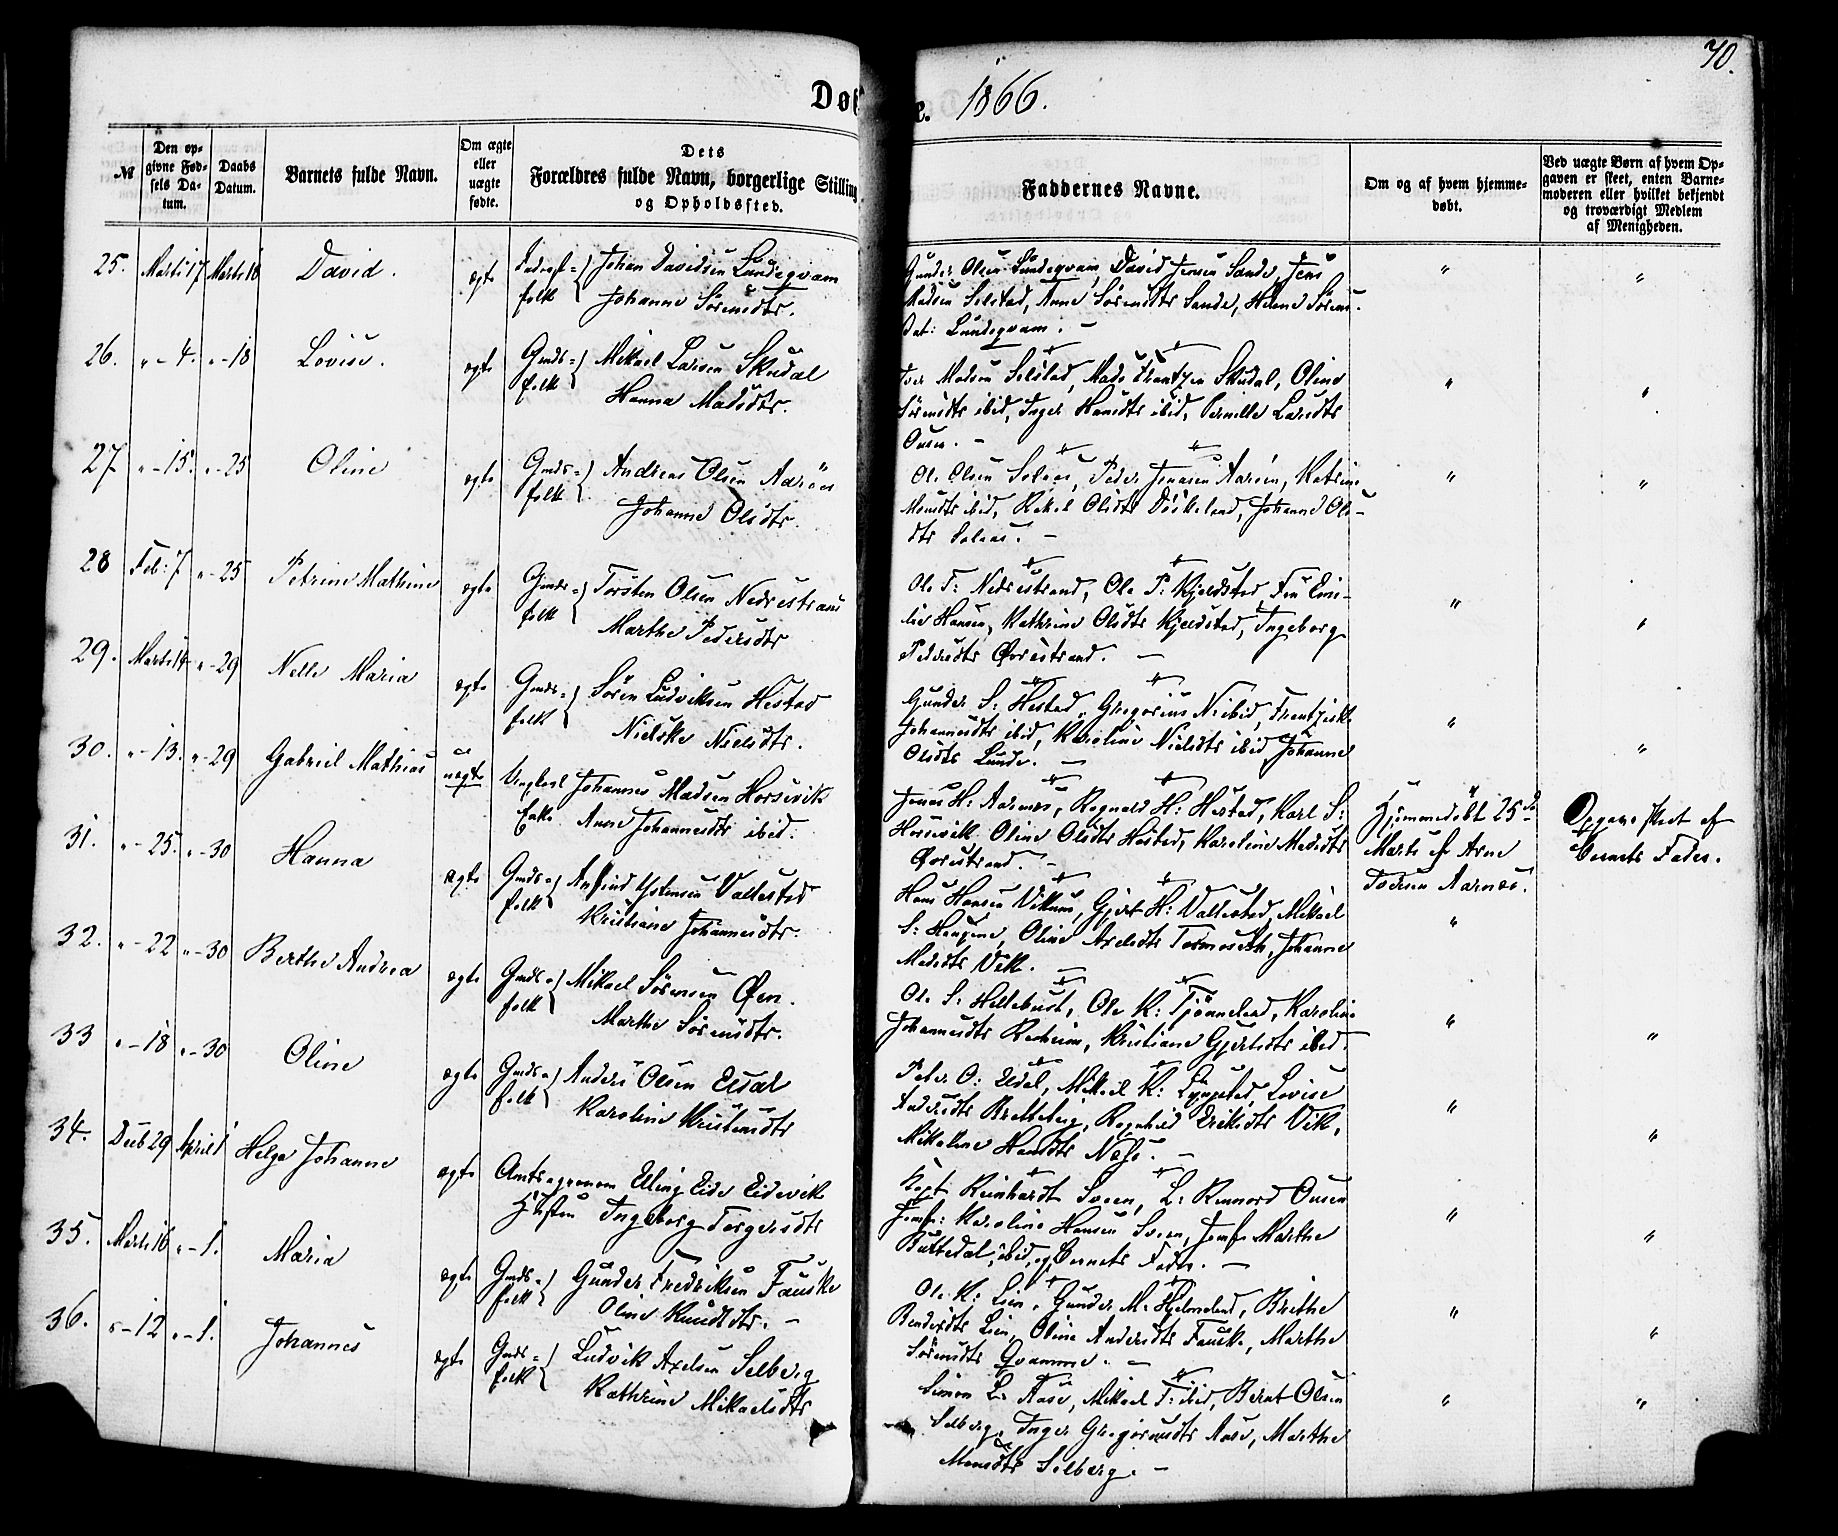 70.
Døb
e. 1866.
№
Den op-
givne Fød-
sels Da-
tum.
Daabs
Datum.
Barnets fulde Navn.
Om ægte
eller
uægte
fødte.
Dets
Forældres fulde Navn, borgerlige Stilling
og Opholdssted.
Faddernes Navne.
Om og af hvem hjemme-
døbt.
Ved uægte Børn af hvem Op-
gaven er skeet, enten Barne-
moderen eller hvilket bekjendt
og troværdigt Medlem
af Menigheden.
25. Marts 17 Marts 18 David. ægte folk Johan Davidsen Lundeqvam
Johanne Sörensdtr.
Gunder Olsen Lundeqvam, David Jensen Sande, Jens
Madsen Selstad, Anne Sörensdtr Sande, Helene Sörens-
Dat: Lundeqvam. —
26. " - 4. " - 18 Lovise. ægte Gmds= folk Mikael Larsen Skudal
Hanna Madsdtr.
Iver Madsen Selstad, Mads Frantzen Skudal, Oline
Sörensdtr ibid, Inger Hansdtr ibid, Pernille Larsdtr
27 " - 15. " - 25 Oline ægte Gmds= folk Andreas Olsen Aaröen
Johanne Olsdtr.
Ole Olsen Solaas, Peder Jonasen Aaröen, Katrine
Monsdtr ibid, Rakel Olsdtr Döskeland, Johanne Ols-
dtr Solaas. —
28 Feb: 7 " - 25 Petrine Mathine ægte Gmds= folk Torsten Olsen Nedrestrand
Marthe Pedersdtr
Ole T: Nedrestrand, Ole P: Kjelstad, Emi-
lie Hansen, Kathrine Olsdtr Kjelstad, Ingeborg
Pedersdtr Övrestrand. —
29. Marts 14 " - 29 Nelle Maria ægte Gmds= folk Sören Ludviksen Hestad
Nielske Nielsdtr.
Gunder S: Hestad, Gregorius N: ibid, Frentziska
Johannesdtr ibid, Karoline Nielsdtr ibid, Johanne
Olsdtr Lunde. —
30. " - 13. " - 29 Gabriel Mathias uægte Ungkarl Johannes Madsen Horsevik
Pike Anne Johannesdtr ibid.
Jonas H: Aarnes, Ragnald H: Hestad, Karl S:
Horsevik, Oline Olsdtr Hestad, Karoline Madsdtr
Övrestrand. —
Hjemmedöbt 25de
Marts af Arne
Iversen Aarnæs.
Opgave skeet af
Barnets Fader.
31. " - 25. " - 30 Hanna ægte Gmds= folk Anfind Ystensen Vallestad
Kristiane Johannesdtr.
Hans Hansen Viknes, Gjert H: Vallestad, Mikael
S: Haugene, Oline Axelsdtr Tormoseth, Johanne
Madsdtr Vik. —
32. " - 22 " - 30 Berthe Andrea ægte Gmds= folk Mikael Sörensen Öen.
Marthe Sörensdtr.
Ole S: Hellebust, Ole K: Tjönneland, Karoline
Johannesdtr Reeheim, Kristiane Gjertsdtr ibid.
33 " - 18 " - 30 Oline ægte Gmds= folk Anders Olsen Eldal
Karoline Kristensdtr
Peter O: Eldal, Mikael K: Lyngstad, Lovise
Andersdtr Bretteberg, Ragnhild Eriksdtr Vik,
Mikaline Hansdtr Næss. —
34. Decb 29 April 1 Helga Johanne ægte Amtsagronom Elling Eide Eidevik
Hustru Ingeborg Torgersdtr
Kapt Reinhardt Sveen, L: Rennord Ousen
Jomf: Karoline Hansen Sveen, Jomf Marthe
Buttedal, ibid, og Barnets Fader. —
35. Marts 16 " - 1. Maria ægte Gmds= folk Gunder Fredriksen Fauske
Oline Knudsdtr. —
Ole K: Lien, Gunder M: Hjelmeland, Brithe
Bendixdtr Lien, Oline Andersdtr Fauske, Marthe
Sörensdtr Qvamme. —
36. " - 12 " - 1. Johannes ægte Gmds= folk Ludvik Axelsen Selberg
Kathrine Mikaelsdtr
Simon L: Aase, Mikael F: ibid, Bernt Olsen
Selberg, Inger Gregoriusdtr Aase, Marthe
Monsdtr Selberg. —